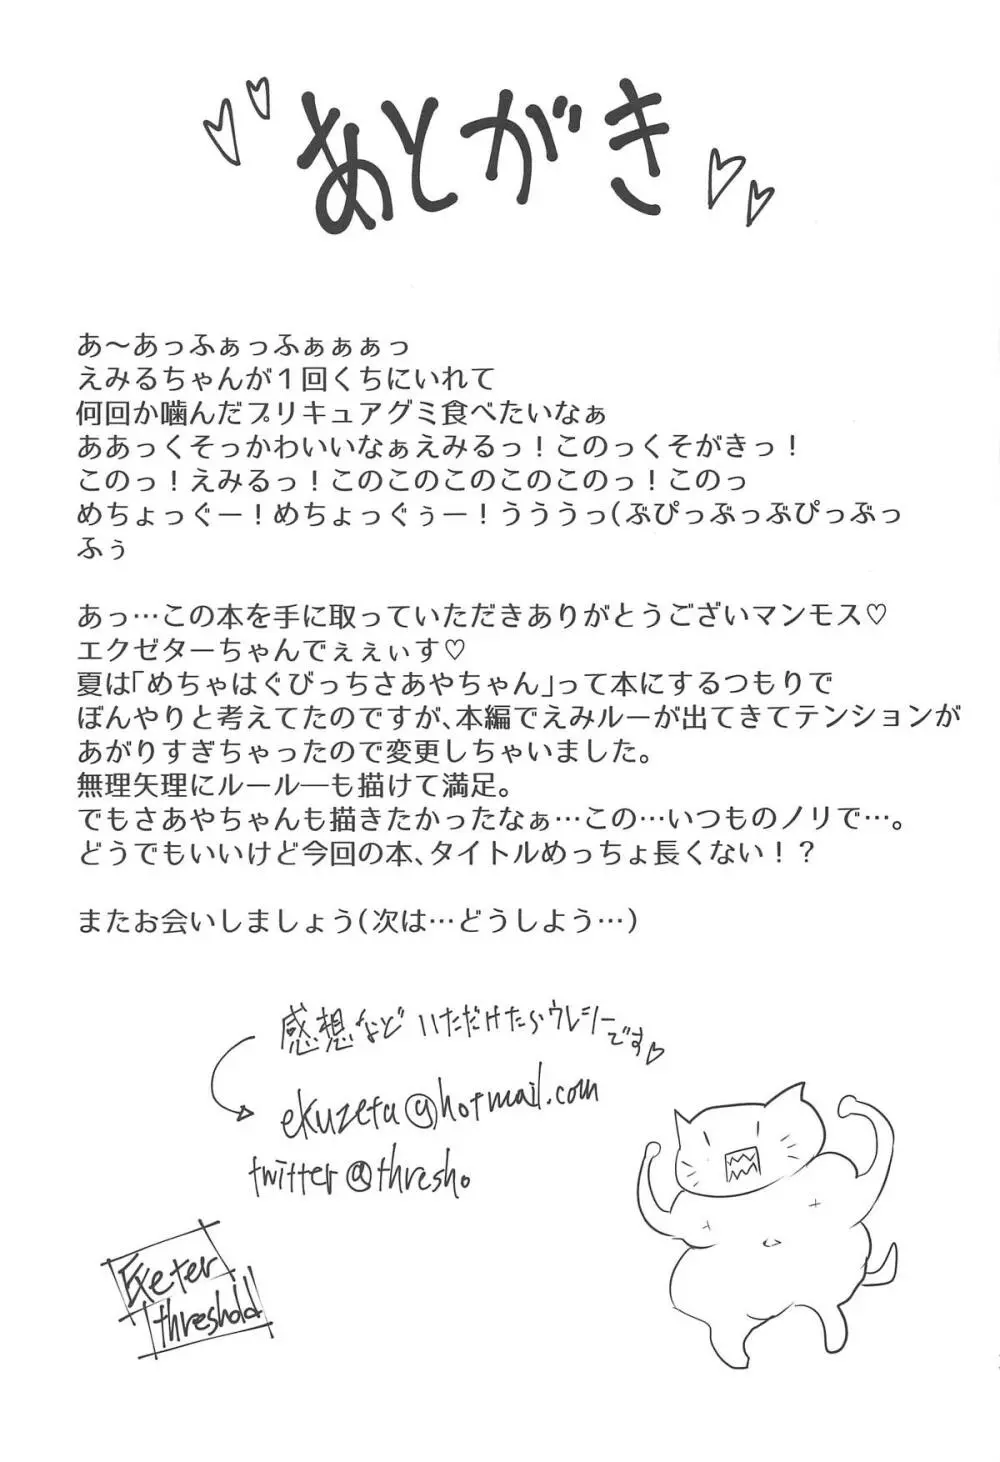 あとがき
あ～あっふぁっふぁぁぁっ
えみるちゃんが１回くちにいれて
何回か噛んだプリキュアグミ食べたいなぁ
ああっくそっかわいいなぁえみるっ！このっくそがきっ！
このっ！えみるっ！このこのこのこのこのっ！このっ
めちょっぐー！めちょっぐぅー！うううっ(ぶぴっぶっぶぴっぶっ
ふぅ
あっ…この本を手に取っていただきありがとうございマンモス♡
エクゼターちゃんでぇぇぃす♡
夏は｢めちゃはぐびっちさあやちゃん｣って本にするつもりで
ぼんやりと考えてたのですが､本編でえみルーが出てきてテンションが
あがりすぎちゃったので変更しちゃいました。
無理矢理にルール―も描けて満足。
でもさあやちゃんも描きたかったなぁ…この…いつものノリで…。
どうでもいいけど今回の本､タイトルめっちょ長くない！？
またお会いしましょう(次は…どうしよう…)
感想など いただけたらウレシーです♡
ekuzeta@hotmail.com
twitter@thresho
Exeter
threshold